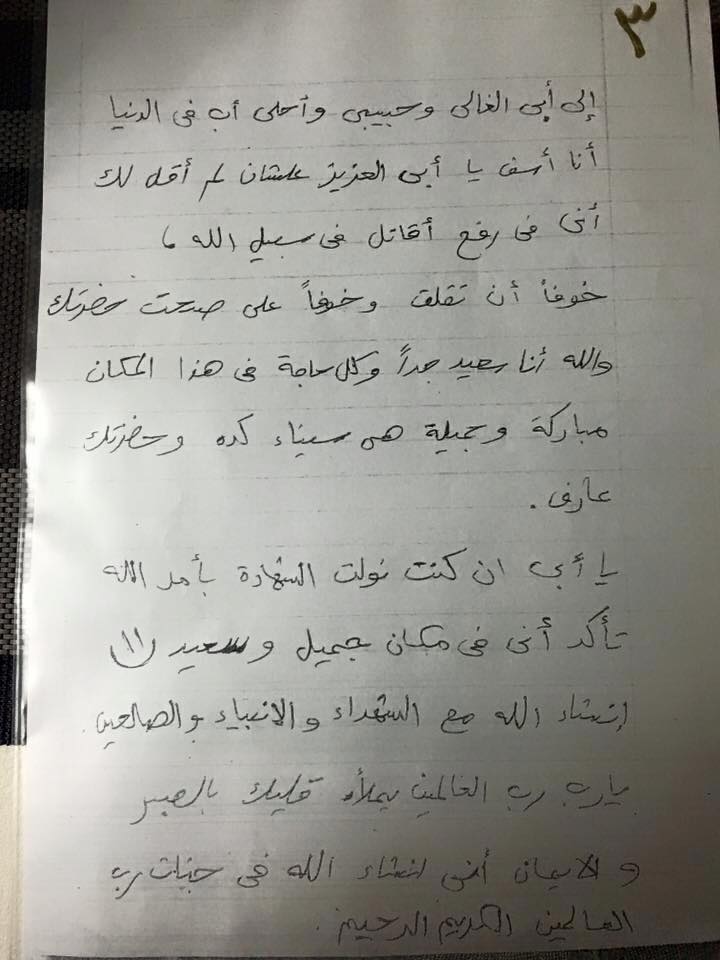 ٣
إلى أبى الغالى وحبيبى وأحلى أب فى الدنيا
أنا أسف يا أبى العزيز علشان لم أقل لك
أنى فى رفح أقاتل فى سبيل الله ،
خوفاً أن تقلق وخوفاً على صحت حضرتك
والله أنا سعيد جداً وكل حاجة فى هذا المكان
مباركة وجميلة هى سيناء كده وحضرتك
عارف .
يا أبى ان كنت نولت الشهادة بأمر الله
تأكد أنى فى مكان جميل وسعيد (١١)
إنشاء الله مع الشهداء والانبياء والصالحين .
يارب رب العالمين يملأ قلبك بالصبر
والايمان أنى إنشاء الله فى جنات رب
العالمين الكريم الرحيم .